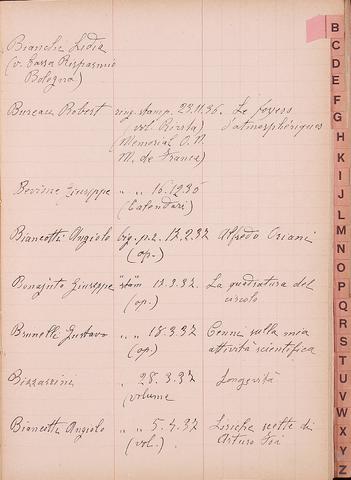 Bianchi Lidia
(v. Cassa Risparmio
Bologna)
Bureau Robert ring. stamp. 23.11.36. Le foyers
(vol. Rivista) d'atmosphériques
(Memorial O. N.
M. de France)
Bovione Giuseppe " " 16.12.36
(Calendari)
Bianchotti Angiolo big. p.a. 12.2.37 Alfredo Oriani
(op.)
Bonajuto Giuseppe "stam" 13.3.37 La quadratura del
(op.) circolo
Brunelli Gustavo " " 18.3.37 Cenni sulla mia
(op.) attività scientifica
Bizzarrini " " 28.3.37 Longevità
(volume
Biancotti Angiolo " " 5.4.37 Liriche scelte di
(vol.) Arturo Foà
B
C
D
E
F
G
H
K
I
J
L
M
N
O
P
Q
R
S
T
U
V
W
X
Y
Z